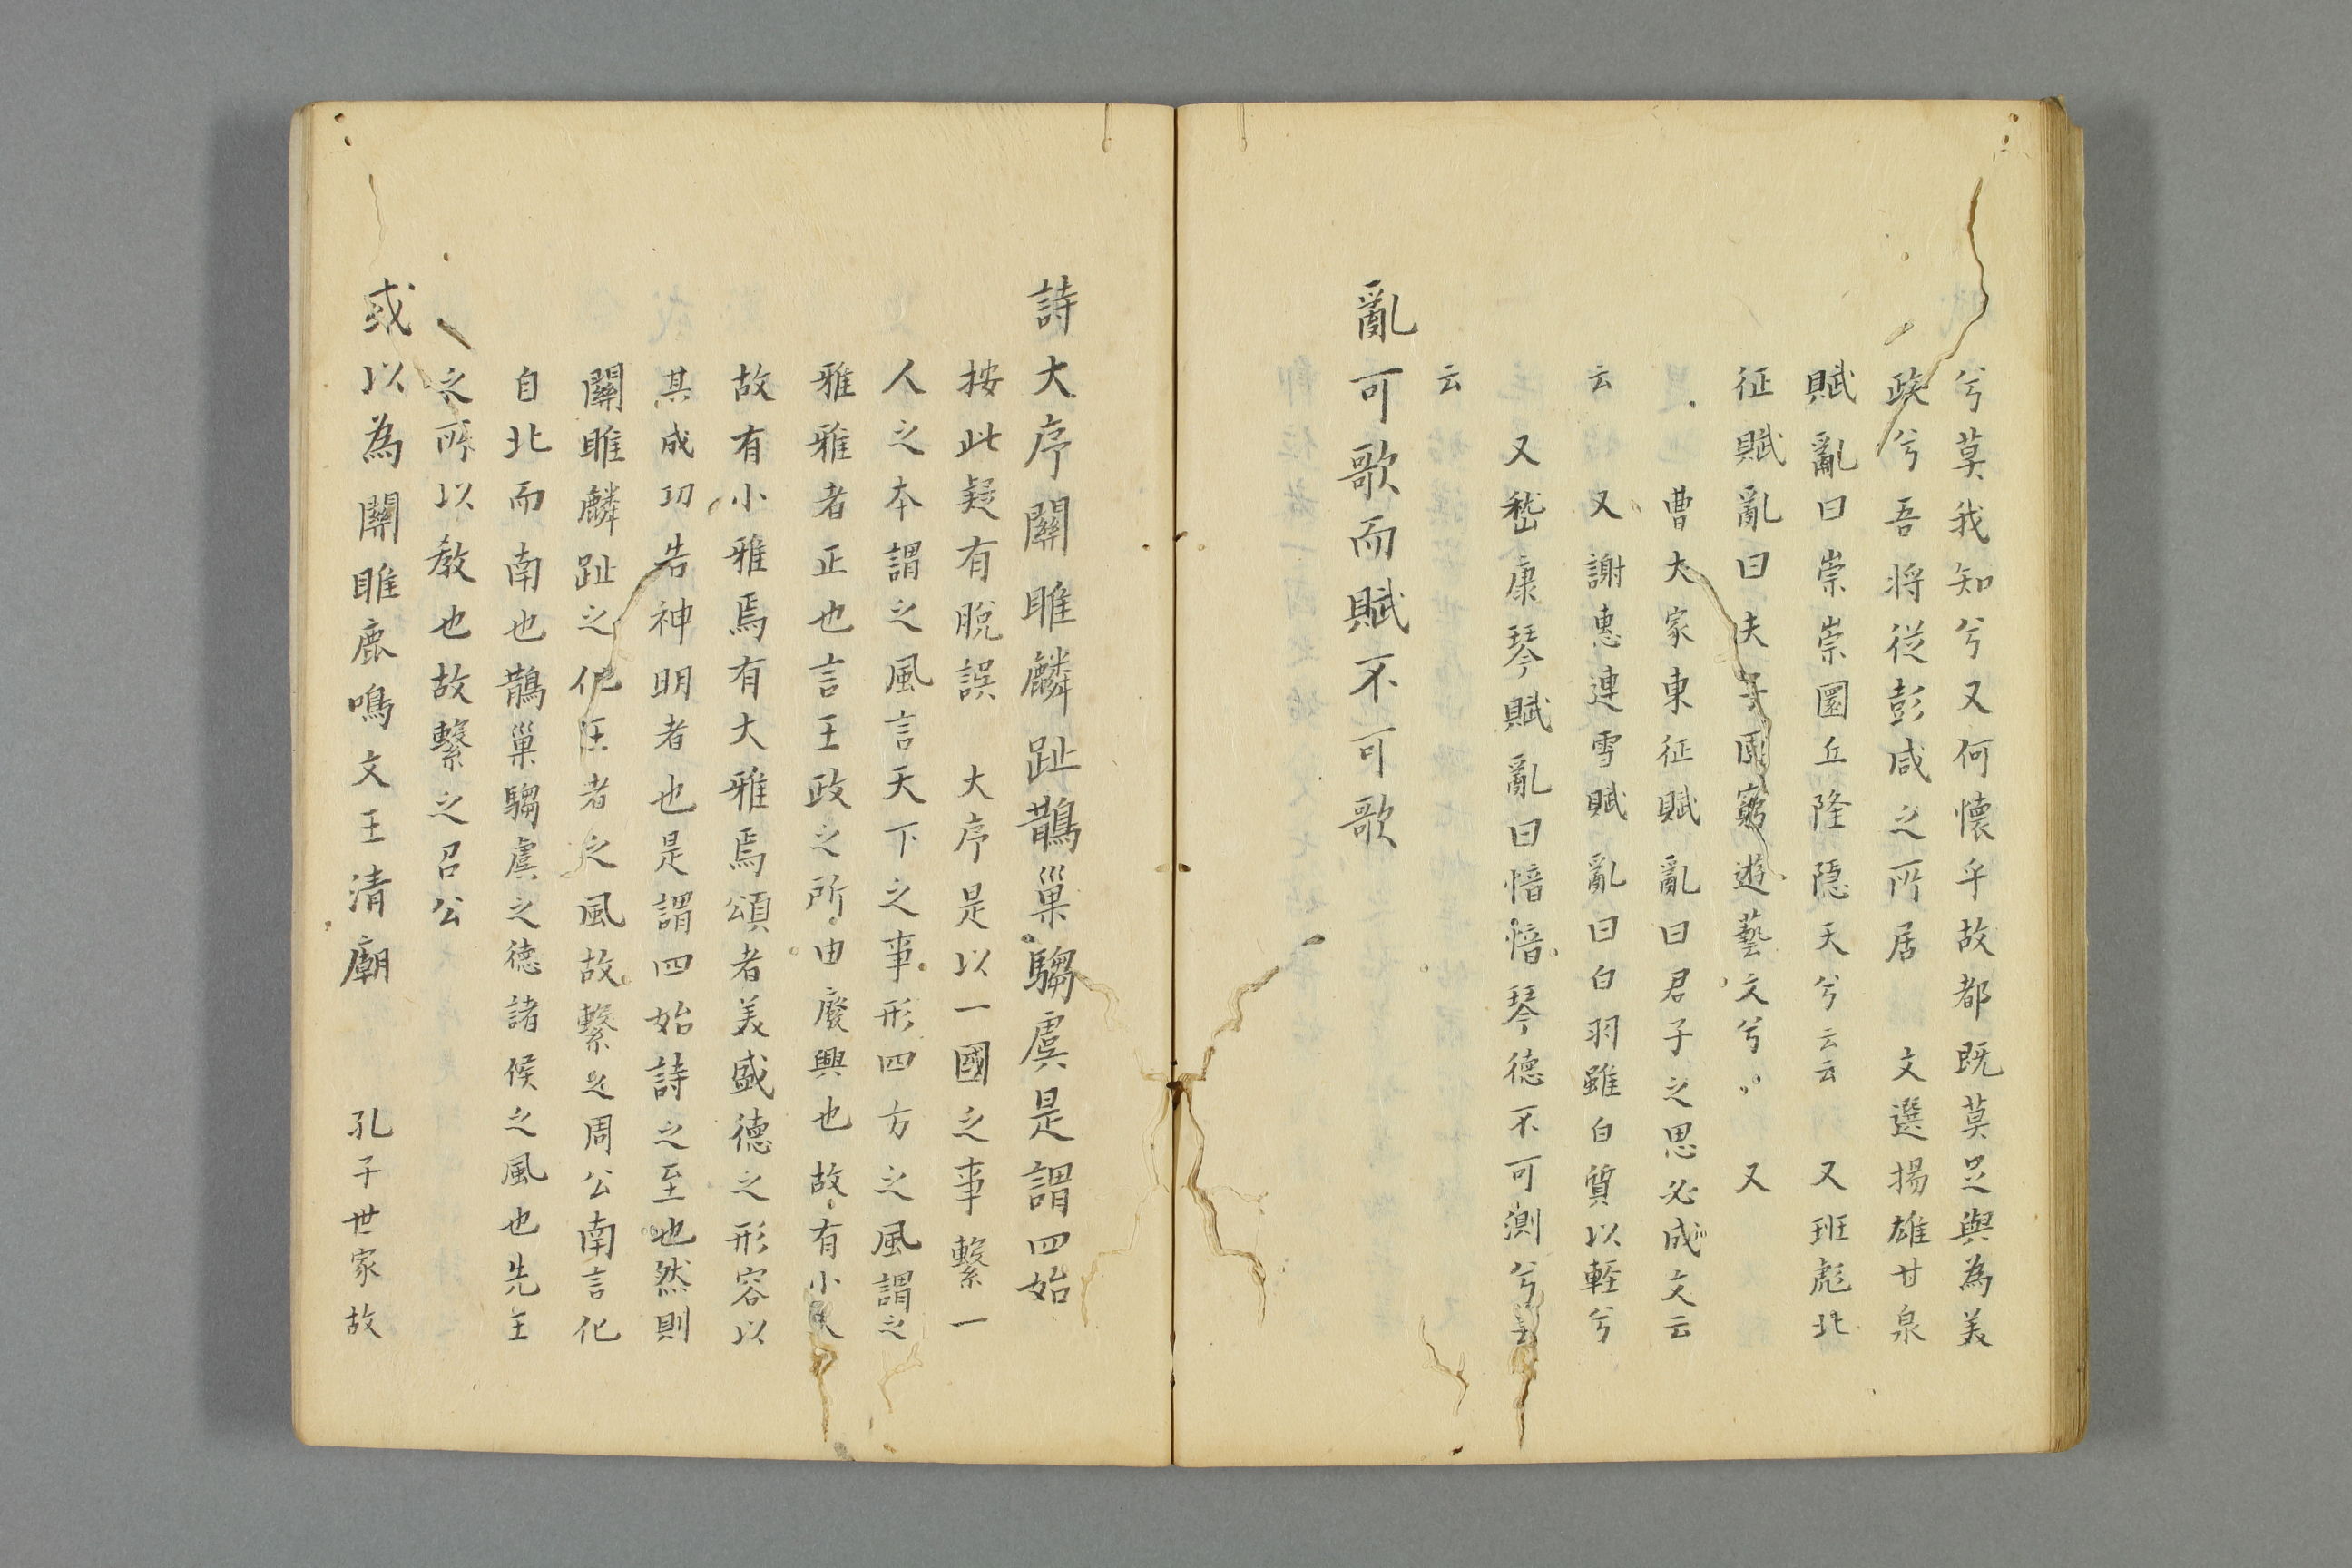 兮莫我知兮又何懐乎故都既莫足與為美
政兮吾将従彭咸之所居　文選揚雄甘泉
賦亂曰崇崇圜丘隆隠天兮云云　又班彪北
征賦亂曰夫子固窮遊藝文兮〻〻　又
曹大家東征賦亂曰君子之思必成文云
云　又謝惠連雪賦亂曰白羽雖白質以軽兮
又嵇康琴賦亂曰愔愔琴徳不可測兮云
云
亂可歌而賦不可歌
詩大序關雎麟趾鵲巢騶虞是謂四始
按此疑有脫誤　大序是以一國之事繫一
人之本謂之風言天下之事形四方之風謂之
雅雅者正也言王政之所由廢興也故有小大
故有小雅焉有大雅焉頌者美盛徳之形容以
其成功告神明者也是謂四始詩之至也然則
關雎麟趾之化王者之風故繫之周公南言化
自北而南也鵲巢騶虞之徳諸候之風也先王
之所以教也故繫之召公
或以為關雎鹿鳴文王清廟　孔子世家故